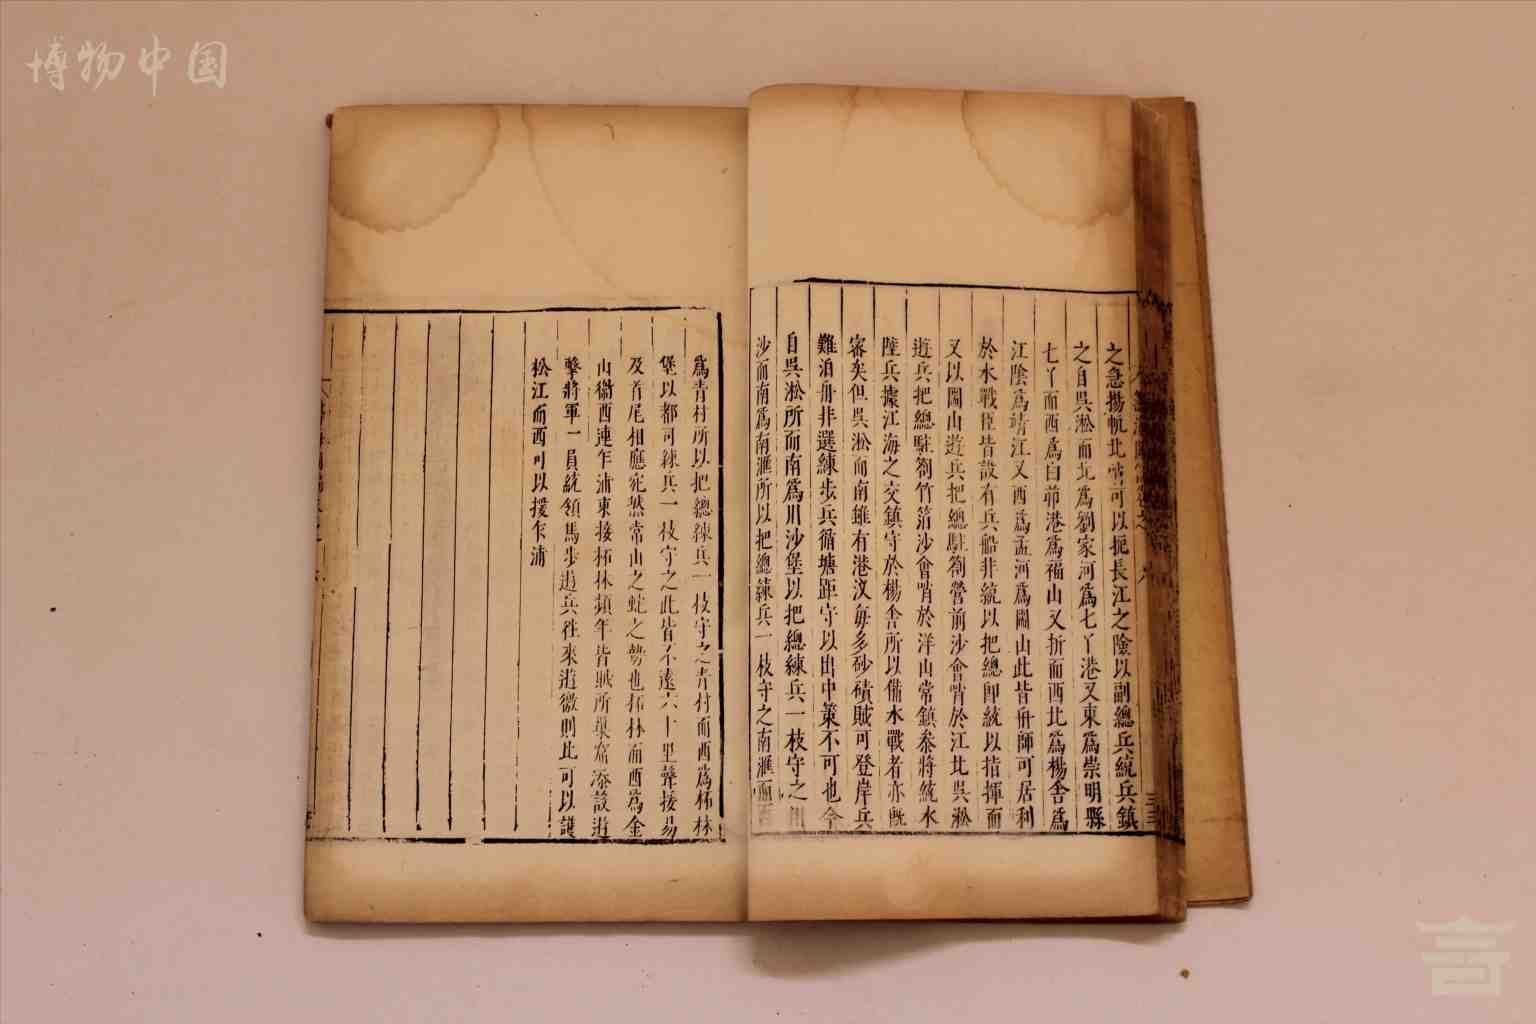 博物中国
之急揚帆北常可以扼長江之險以副總兵統兵鎮
之自吳淞而北為劉家河為七丫港又東為崇明縣
七丫而西為白茆港為福山又折而西北為楊舍為
江陰為靖江又西為孟河為圌山此皆舟師可居利
於水戰臣皆設有兵船非統以把總即統以指揮而
又以圌山遊兵把總駐劄營前沙會哨於江北吳淞
遊兵把總駐劄竹箔沙會哨於洋山常鎮叅將統水
陸兵據江海之交鎮守於楊舍所以備水戰者亦既
審矣但吳淞而南雖有港汊每多砂磧賊可登岸兵
難泊舟非選練步兵循塘距守以出中策不可也今
自吳淞所而南為川沙堡以把總練兵一枝守之川
沙而南為南滙所以把總練兵一枝守之南滙而西
為青村所以把總練兵一枝守之青村而西為柘林
堡以都司練兵一枝守之此皆不遠六十里聲接易
及首尾相應宛然常山之蛇之勢也柘林而西為金
山衞西連乍浦東接柘林頻年皆賊所巢窟添設遊
擊將軍一員統領馬步遊兵往來遊徼則北可以護
松江而西可以援乍浦